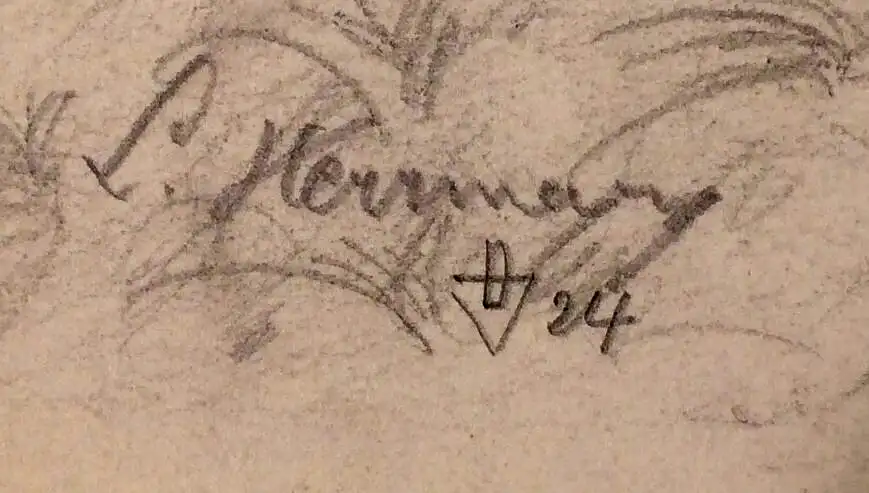 P. Herrmann
24